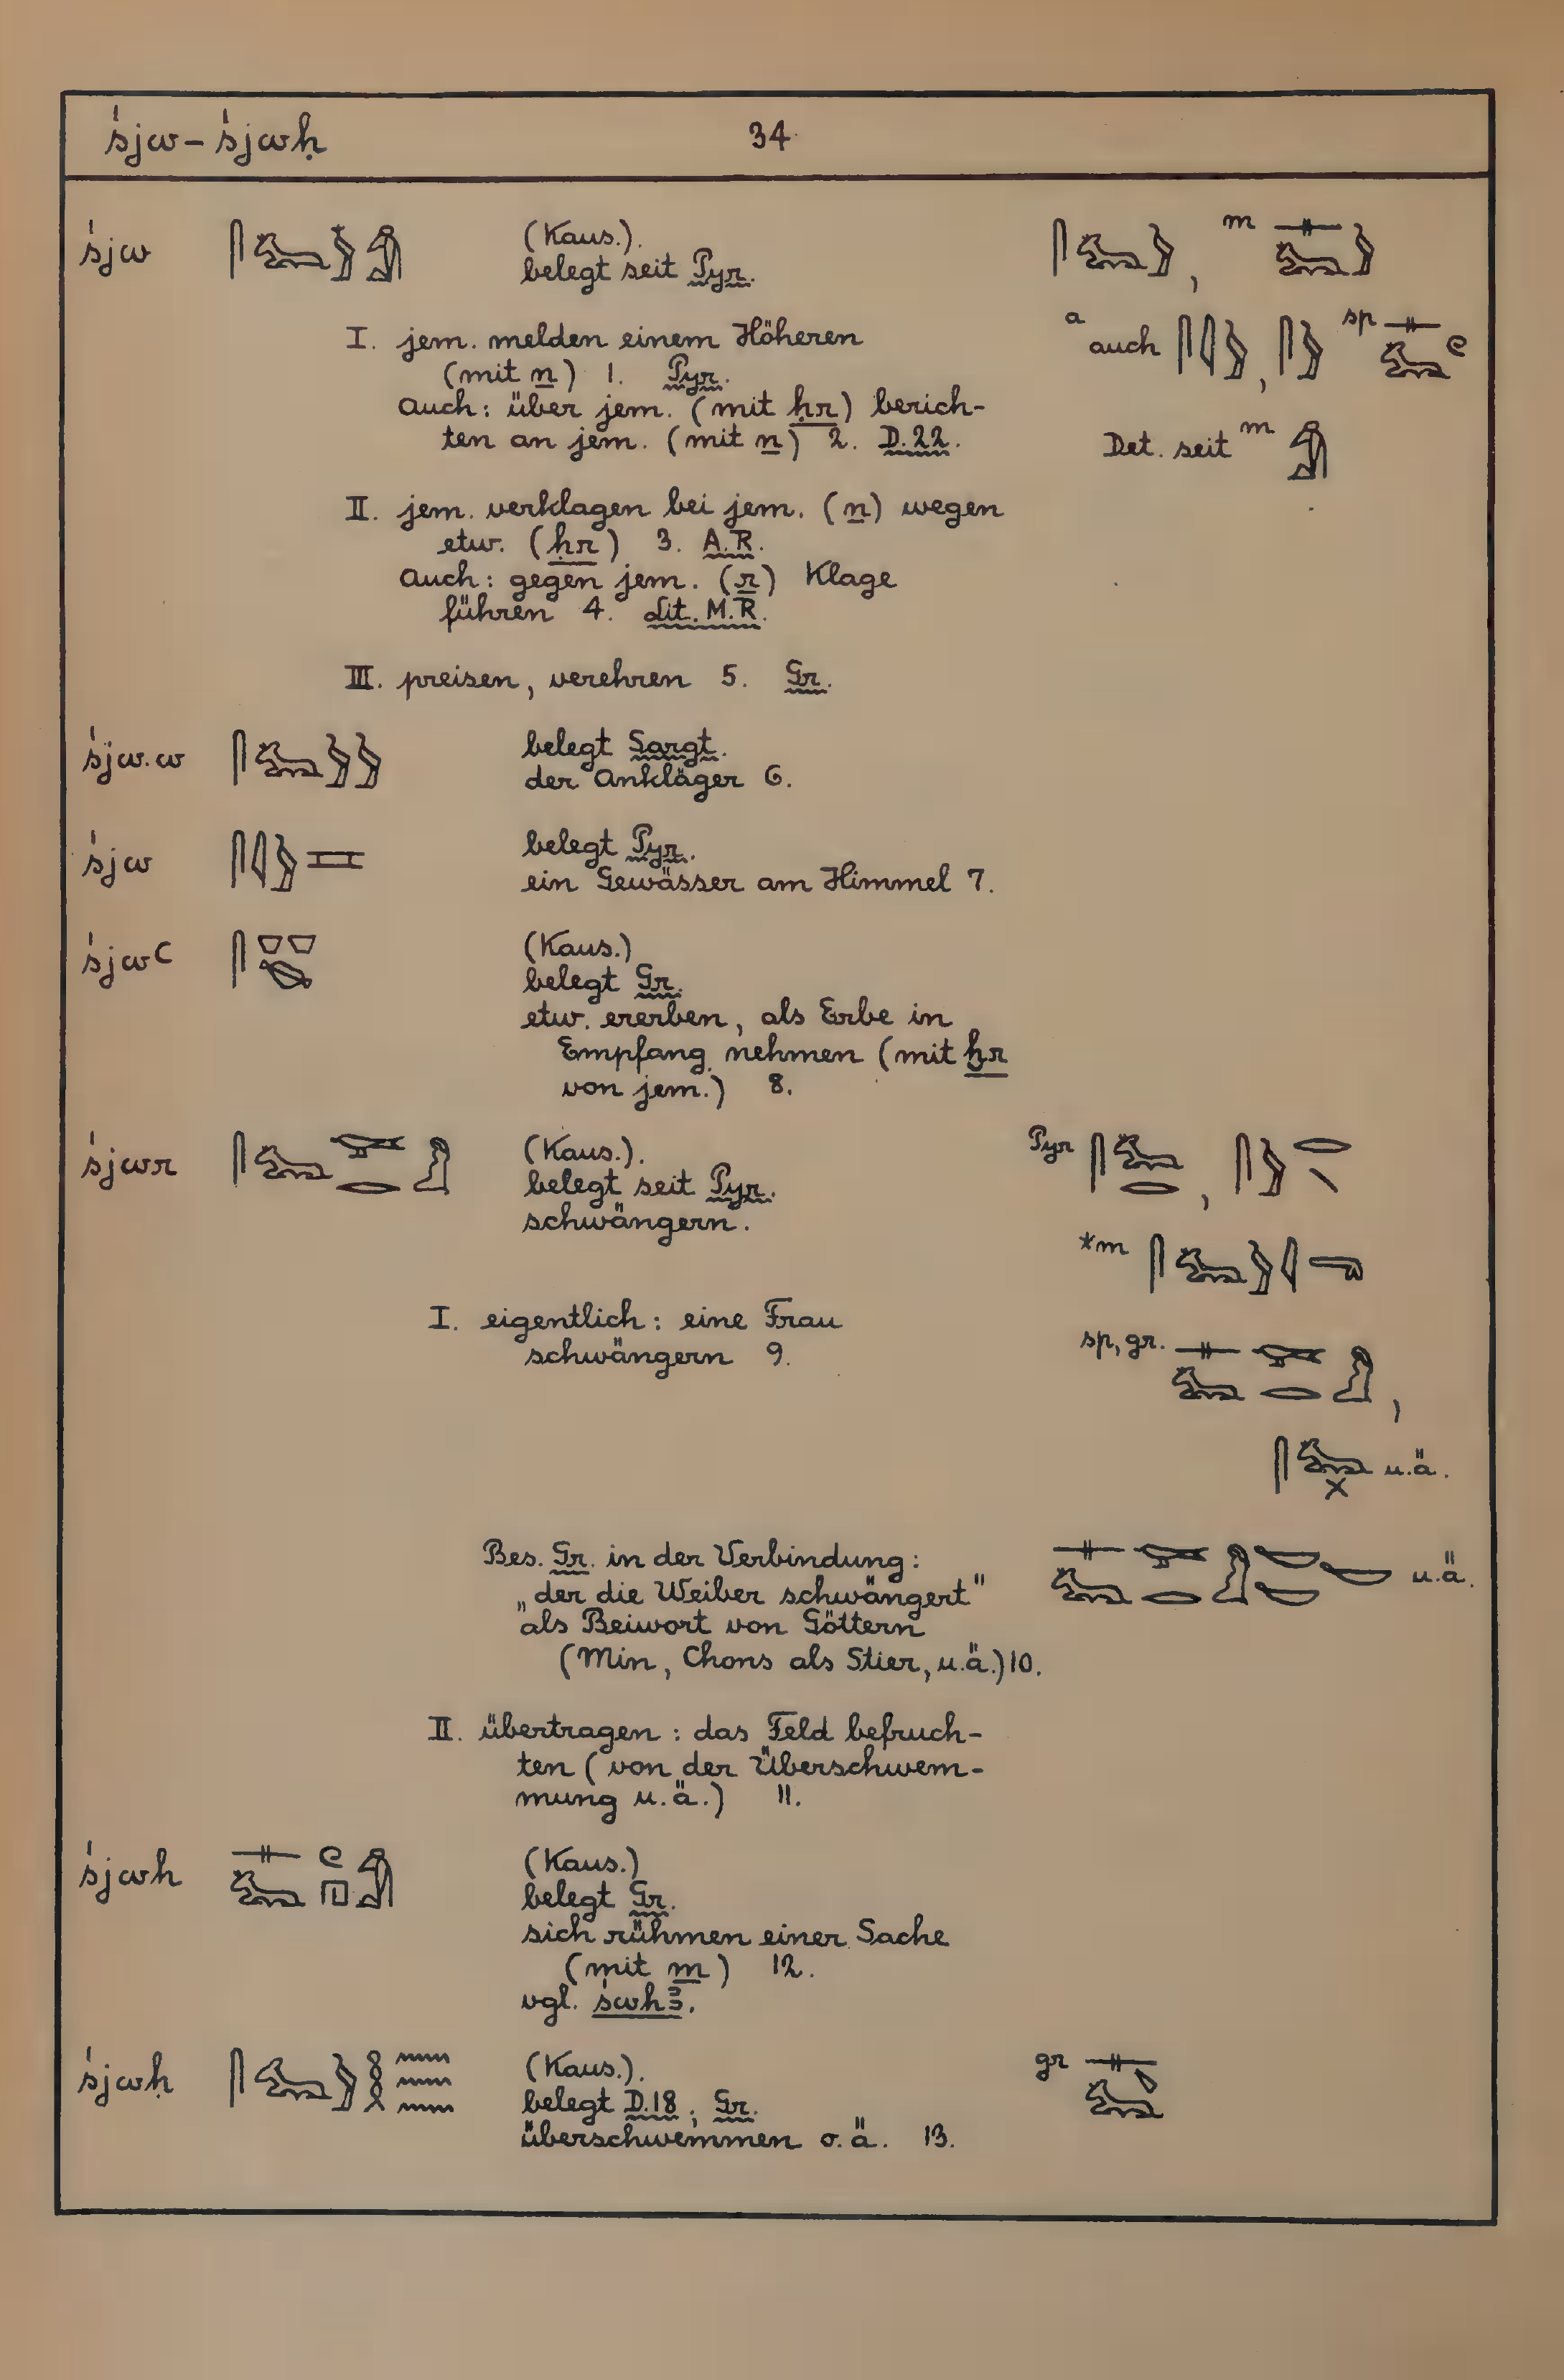 śjw – śjwḥ 34
śjw (Kaus.).
belegt seit Pyr.
, m
I. jem. melden einem Höheren
(mit n) 1. Pyr.
Auch: über jem. (mit ḥr) berich-
ten an jem. (mit n) 2. D.22.
a auch , sp
Det. seit m
II. jem. verklagen bei jem. (n) wegen
etw. (ḥr) 3. A.R.
Auch: gegen jem. (r) Klage
führen 4. Lit. M.R.
III. preisen, verehren 5. Gr.
śjw.w belegt Sargt.
der Ankläger 6.
śjw belegt Pyr.
ein Gewässer am Himmel 7.
śjwꜥ (Kaus.)
belegt Gr.
etw. ererben, als Erbe in
Empfang nehmen (mit ḫr
von jem.) 8.
śjwr (Kaus.).
belegt seit Pyr.
schwängern.
Pyr ,
*m
I. eigentlich: eine Frau
schwängern 9.
sp, gr. ,
u.ä.
Bes. Gr. in der Verbindung:
„der die Weiber schwängert"
als Beiwort von Göttern
(Min, Chons als Stier, u.ä.) 10.
u.ä.
II. übertragen: das Feld befruch-
ten (von der Überschwem-
mung u.ä.) 11.
śjwh (Kaus.)
belegt Gr.
sich rühmen einer Sache
(mit m) 12.
vgl. śwhꜣ.
śjwḥ (Kaus.).
belegt D.18; Gr.
überschwemmen o.ä. 13.
gr